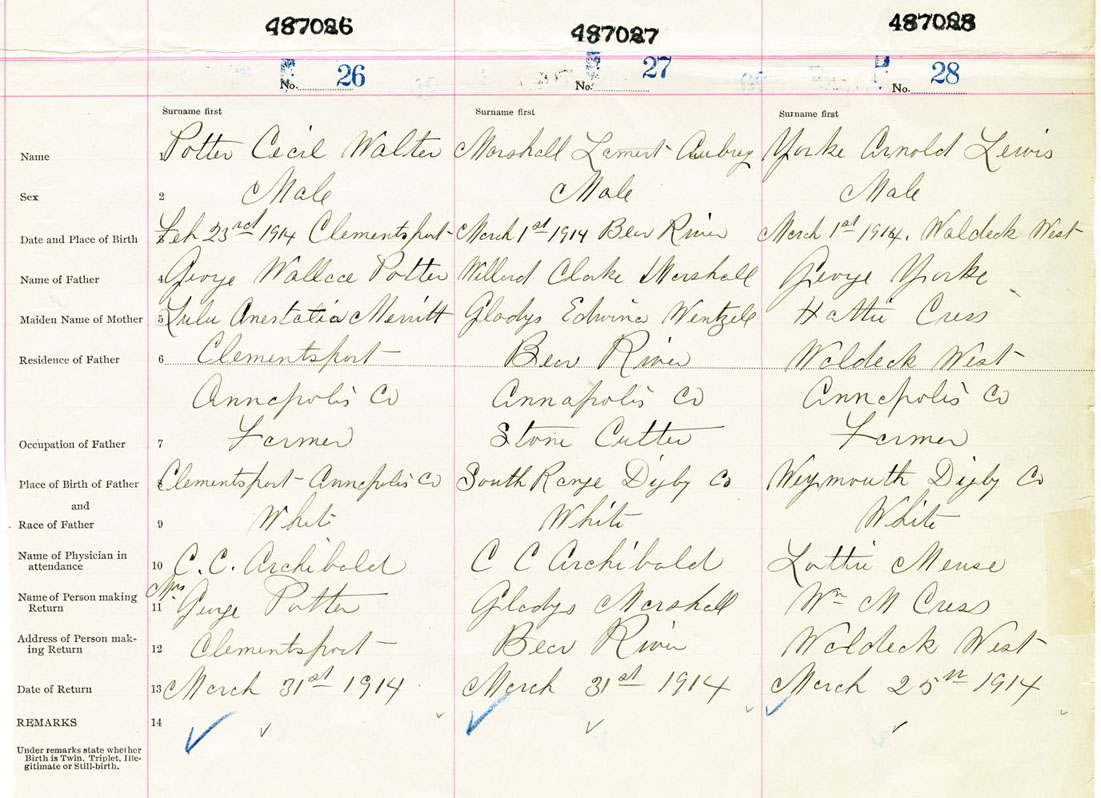 487026 487027 487028
No. 26 No. 27 No. 28
Surname first Surname first Surname first
Name 1 Potter Cecil Walter Marshall Lamert Aubrey Yorke Arnold Lewis
Sex 2 Male Male Male
Date and Place of Birth 3 Feb 23rd 1914 Clementsport March 1st 1914 Bear River March 1st 1914. Waldeck West
Name of Father 4 George Wallace Potter Willard Clarke Marshall George Yorke
Maiden Name of Mother 5 Lulu Anestatia Merritt Gladys Edwina Wentzell Hattie Cress
Residence of Father 6 Clementsport Bear River Waldeck West
Annapolis Co Annapolis Co Annapolis Co
Occupation of Father 7 Farmer Stone Cutter Farmer
Place of Birth of Father 8 Clementsport Annapolis Co South Range Digby Co Weymouth Digby Co
and
Race of Father 9 White White White
Name of Physician in
attendance 10 C. C. Archibald C C Archibald Lottie Meuse
Name of Person making
Return 11 Mrs George Potter Gladys Marshall Wm M Cress
Address of Person mak-
ing Return 12 Clementsport Bear River Waldeck West
Date of Return 13 March 31st 1914 March 31st 1914 March 25th 1914
REMARKS 14
Under remarks state whether
Birth is Twin, Triplet, Ille-
gitimate or Still-birth.